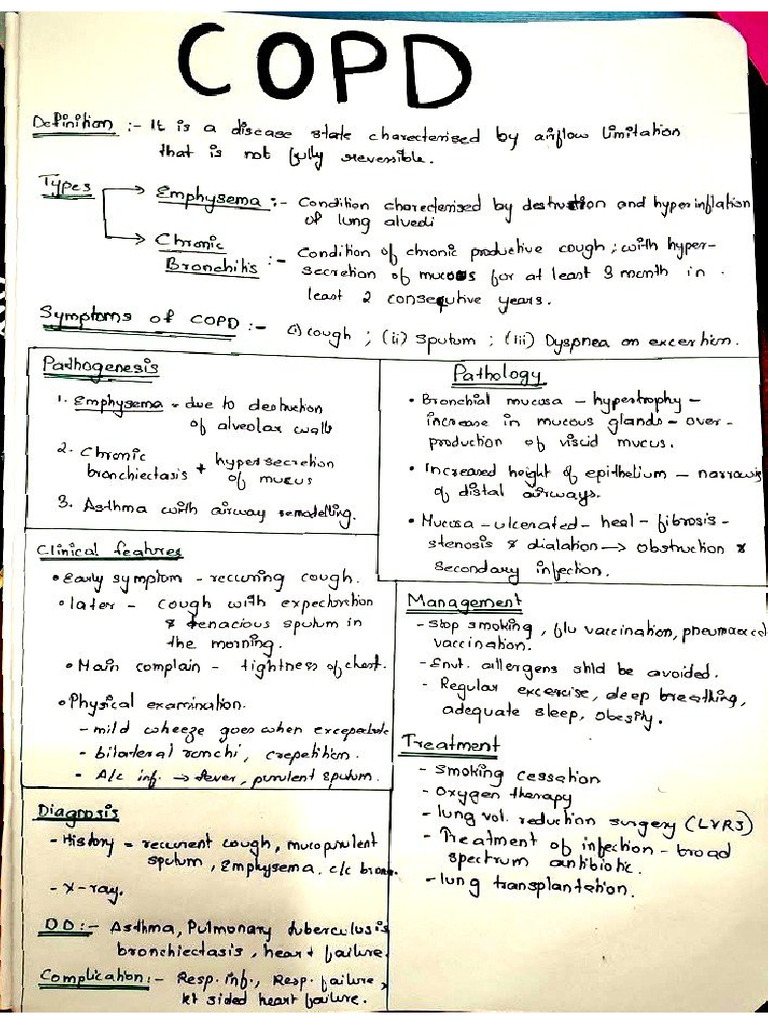 COPD
Definition :- It is a disease state charecterised by airflow limitation
that is not fully reversible.
Types
Emphysema :- Condition charecterised by destruction and hyperinflation
of lung alveoli
Chronic
Bronchitis :- Condition of chronic productive cough ; with hyper-
secretion of mucous for at least 3 month in
least 2 consequtive years.
Symptoms of COPD :- (i) cough ; (ii) Sputum ; (iii) Dyspnea on excertion.
Pathogenesis
1. Emphysema - due to destruction
of alveolar walls
2. Chronic
bronchiectasis + hypersecretion
of mucus
3. Asthma with airway remodelling.
Pathology
• Bronchial mucosa - hypertrophy -
increase in mucous glands - over-
production of viscid mucus.
• Increased height of epithelium - narrowing
of distal airways.
• Mucosa - ulcerated - heal - fibrosis -
stenosis & dialation → obstruction &
secondary infection.
Clinical features
• Early symptom - reccuring cough.
• later - cough with expectoration
& tenacious sputum in
the morning.
• Main complain - tightness of chest.
• Physical examination.
- mild wheeze goes when
- bilateral ronchi, crepetition.
- A/c inf. → fever, purulent sputum.
Management
- Stop smoking, flu vaccination, pneumococcal
vaccination.
- Envt. allergens shld be avoided.
- Regular excercise, deep breathing,
adequate sleep, obesity.
Treatment
- Smoking cessation
- Oxygen therapy
- lung vol. reduction surgery (LVRS)
- Treatment of infection - broad
spectrum antibiotic.
- lung transplantation.
Diagnosis
- History - recurrent cough, mucopurulent
sputum, Emphysema, c/c bron.
- X-ray.
DD :- Asthma, Pulmonary tuberculosis
bronchiectasis, heart failure.
Complication :- Resp. inf., Resp. failure,
Rt sided heart failure.